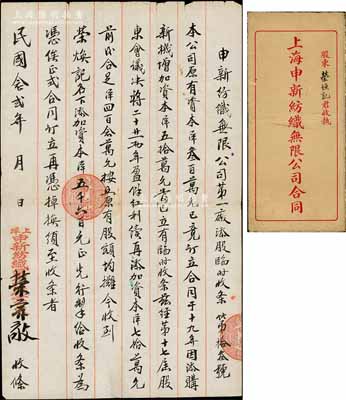 申新紡織無限公司第一廠添股臨時收条 第拾叁號
本公司原有資本洋叁百萬元已竟訂立合同于十九年因添購
新機增加資本洋五拾萬元前已立有臨時收条茲經第十七屆股
東會議決將二十廿一两年盈餘红利续再添加資本洋七拾萬元
前後合足洋四百念萬元按立原有股額均攤今收到
榮煥記名下添加資本洋五千六百元正先行製給收条為
憑俟正式合同訂立再憑掉換須至收条者
民國念弍年 月 日
榮宗敬 收條
股東 榮煥記 君收執
上海申新紡織無限公司合同